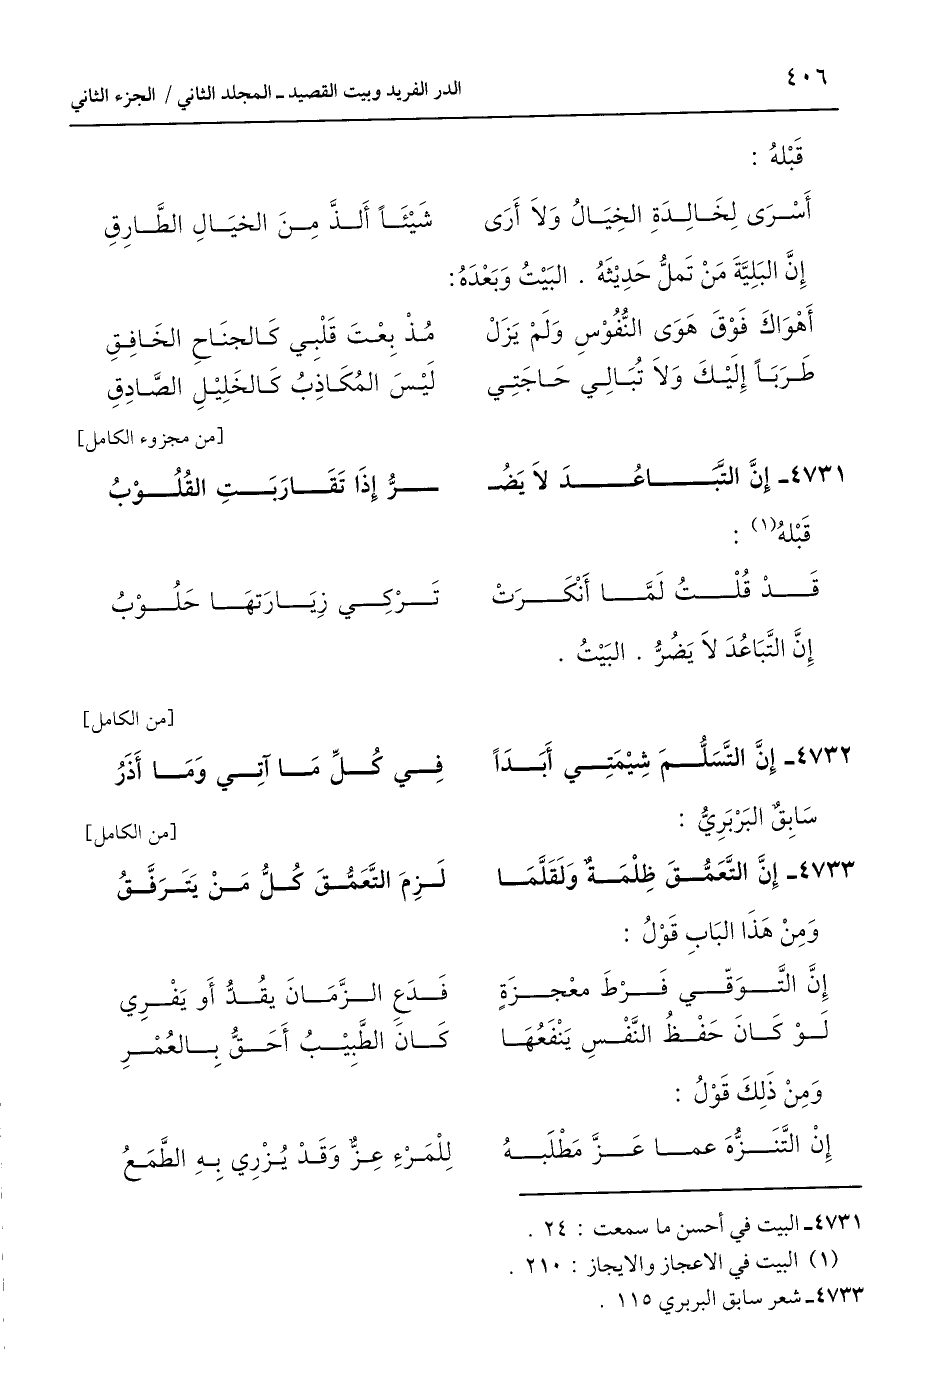 ٤٠٦
الدر الفريد وبيت القصيد ـ المجلد الثاني / الجزء الثاني
قَبْلهُ :
أَسْرَى لِخَالِدَةِ الخِيَالُ وَلاَ أَرَى شَيْئَاً أَلذَّ مِنَ الخيَالِ الطَّارِقِ
إِنَّ البَلِيَّةَ مَنْ تَملُّ حَدِيْثَهُ . البَيْتُ وَبَعْدَهُ:
أَهْوَاكَ فَوْقَ هَوَى النُّفُوْسِ وَلَمْ يَزَلْ مُذْ بِعْتَ قَلْبِي كَالجنَاحِ الخَافِقِ
طَرَبَاً إِلَيْكَ وَلاَ تُبَالِي حَاجَتِي لَيْسَ المُكَاذِبُ كَالخَلِيْلِ الصَّادِقِ
[من مجزوء الكامل]
٤٧٣١ـ إِنَّ التَّبَاعُدَ لاَ يَضُـ ـرُّ إِذَا تَقَارَبَتِ القُلُوْبُ
قَبْلهُ(١) :
قَدْ قُلْتُ لَمَّا أَنْكَرَتْ تَرْكِي زِيَارَتهَا حَلُوْبُ
إِنَّ التَّبَاعُدَ لاَ يَضُرُّ . البَيْتُ .
[من الكامل]
٤٧٣٢ـ إِنَّ التَّسَلُّمَ شِيْمَتِي أَبَدَاً فِي كُلِّ مَا آتِي وَمَا أَذَرُ
سَابِقٌ البَرْبَرِيُّ :
[من الكامل]
٤٧٣٣ـ إِنَّ التَّعَمُّقَ ظِلْمَةٌ وَلَقَلَّمَا لَزِمَ التَّعَمُّقَ كُلُّ مَنْ يَتَرَفَّقُ
وَمِنْ هَذَا البَابِ قَوْلُ :
إِنَّ التَّوَقِّي فَرْطَ معْجزَةٍ فَدَعِ الزَّمَانَ يقُدُّ أَو يَفْرِي
لَوْ كَانَ حَفْظُ النَّفْسِ يَنْفَعُهَا كَانَ الطَّبِيْبُ أَحَقُّ بِالعُمْرِ
وَمِنْ ذَلِكَ قَوْلُ :
إِنْ التَّنَزُّهَ عمـا عَزَّ مَطْلَبهُ لِلْمَرْءِ عِزٌّ وَقَدْ يُزْرِي بِهِ الطَّمَعُ
٤٧٣١ـ البيت في أحسن ما سمعت : ٢٤ .
(١) البيت في الاعجاز والايجاز : ٢١٠ .
٤٧٣٣ـ شعر سابق البربري ١١٥ .